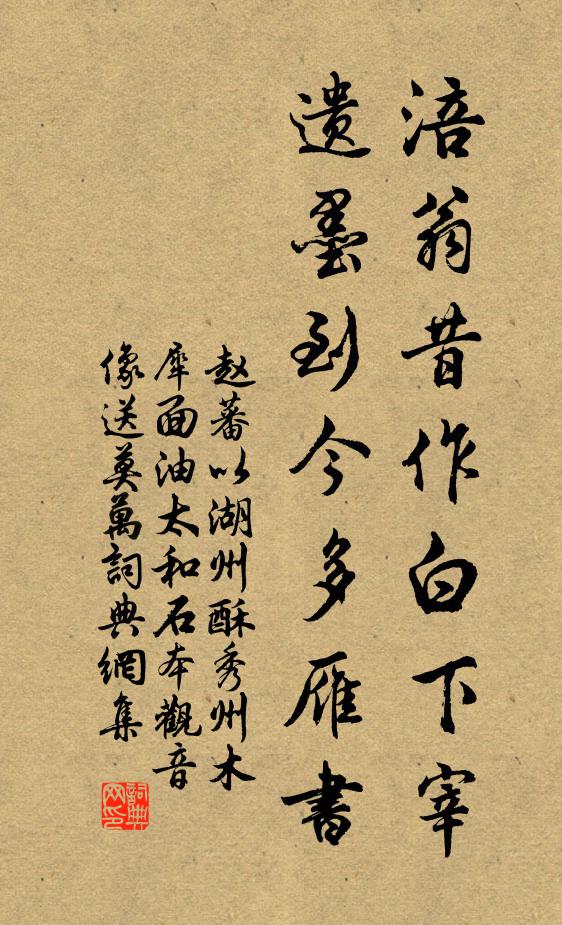 涪翁昔作白下宰
遺墨到今多雁書
赵蕃以湖州酥秀州木
犀面油太和石本觀音
像送莫萬詞典網集
詞典
网印